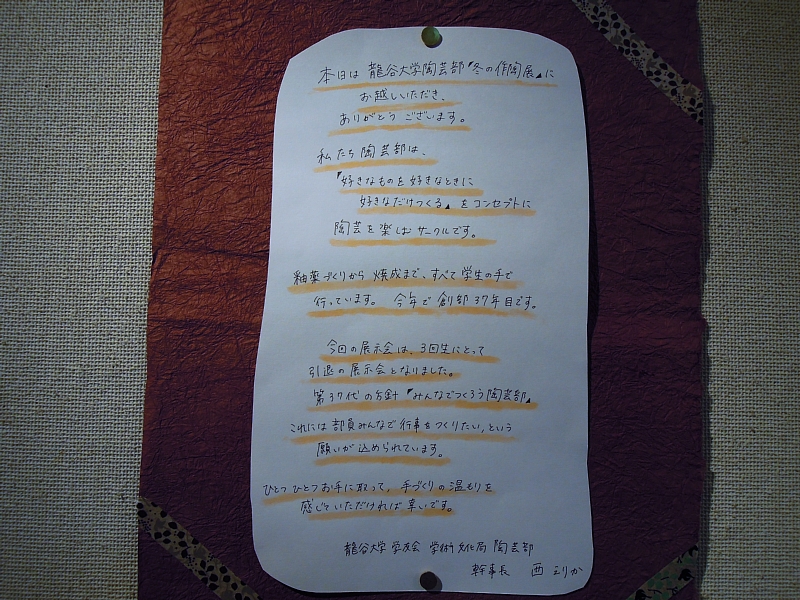 本日は 龍谷大学陶芸部『冬の作陶展』に
お越しいただき、
ありがとう ございます。
私たち 陶芸部は、
『好きなものを 好きなときに
好きなだけつくる』 を コンセプトに
陶芸を 楽しむ サークルです。
釉薬づくりから 焼成まで、すべて 学生の手で
行っています。 今年で 創部 37年目です。
今回の 展示会は、3回生にとって
引退の展示会となりました。
第37代の方針 『みんなでつくろう 陶芸部』
これには 部員みんなで 行事をつくりたい、という
願いが 込められています。
ひとつ ひとつ お手に 取って、手づくりの 温もりを
感じていただければ 幸いです。
龍谷大学 学友会 学術文化局 陶芸部
幹事長 西 えりか